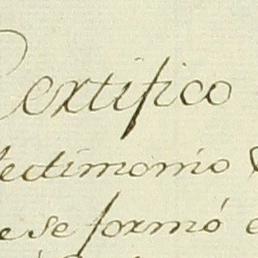 Certifico
testimonio
se formó